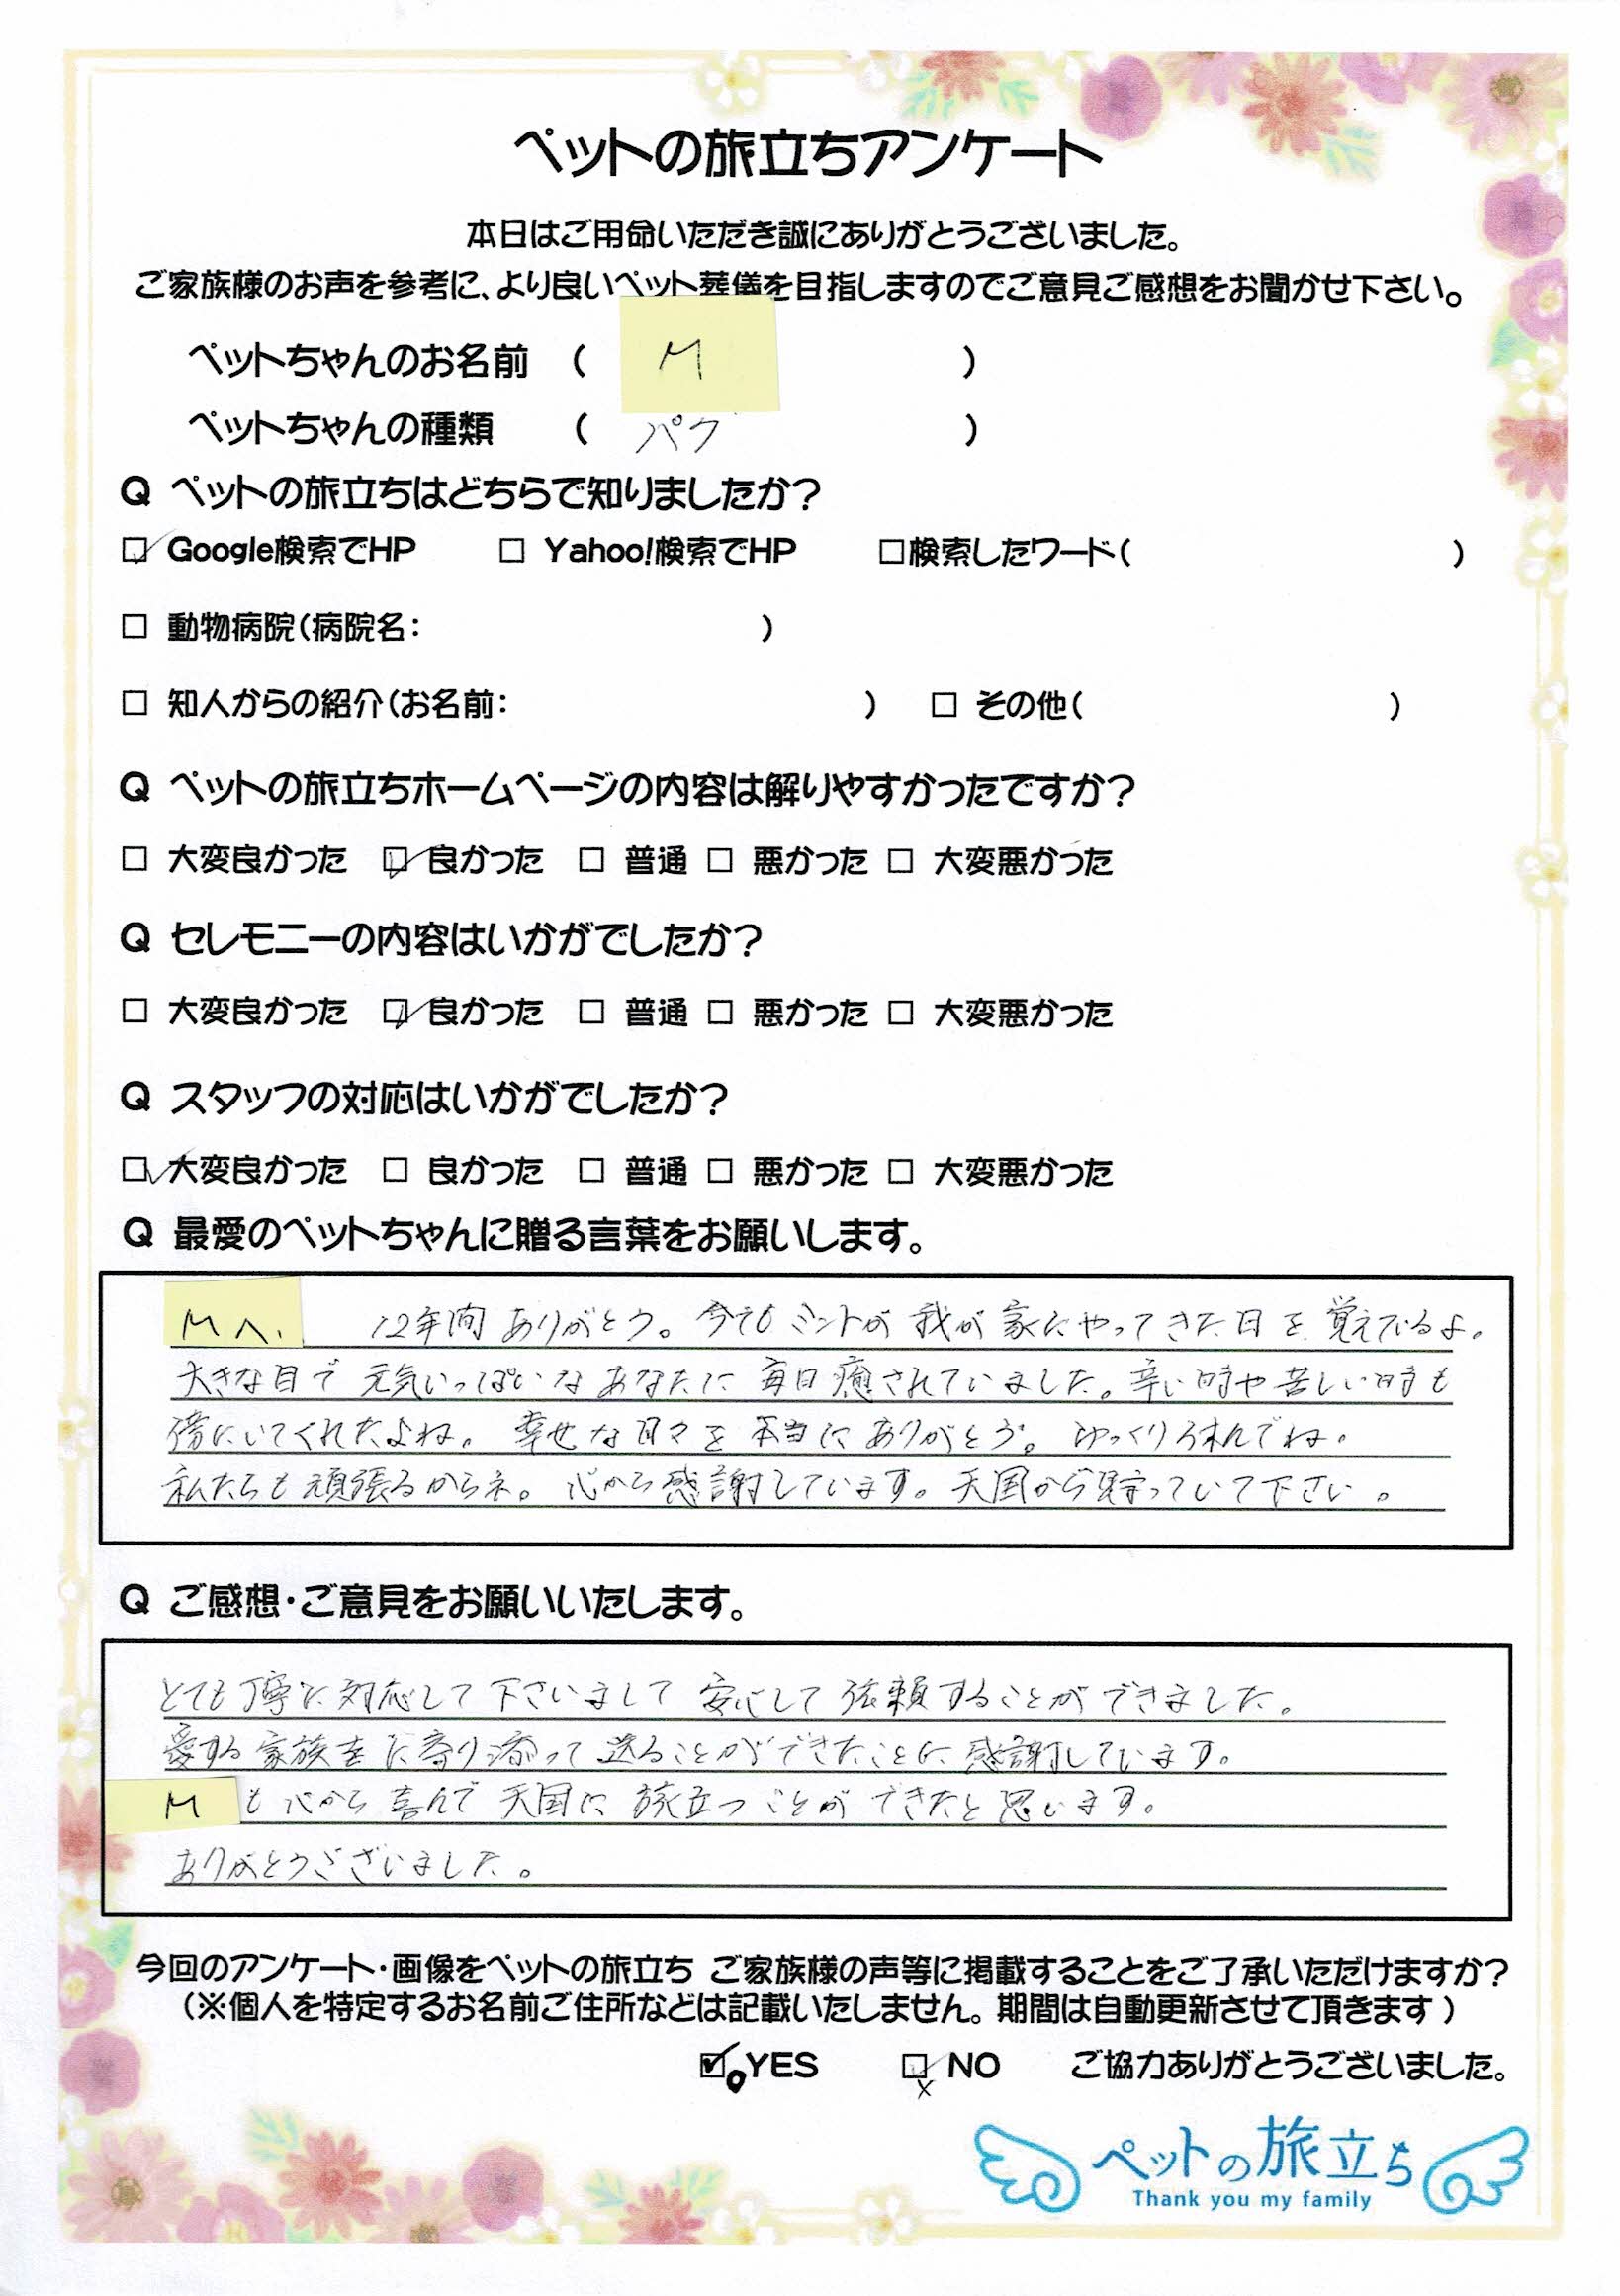 ペットの旅立ちアンケート
本日はご用命いただき誠にありがとうございました。
ご家族様のお声を参考に、より良いペット葬儀を目指しますのでご意見ご感想をお聞かせ下さい。
ペットちゃんのお名前 ( M )
ペットちゃんの種類 ( パグ )
Q ペットの旅立ちはどちらで知りましたか?
☑ Google検索でHP □ Yahoo!検索でHP □検索したワード( )
□ 動物病院(病院名: )
□ 知人からの紹介(お名前: ) □ その他( )
Q ペットの旅立ちホームページの内容は解りやすかったですか?
□ 大変良かった ☑ 良かった □ 普通 □ 悪かった □ 大変悪かった
Q セレモニーの内容はいかがでしたか?
□ 大変良かった ☑ 良かった □ 普通 □ 悪かった □ 大変悪かった
Q スタッフの対応はいかがでしたか?
☑ 大変良かった □ 良かった □ 普通 □ 悪かった □ 大変悪かった
Q 最愛のペットちゃんに贈る言葉をお願いします。
Mへ. 12年間ありがとう。今でもミントが我が家にやってきた日を覚えているよ。
大きな目で元気いっぱいなあなたに毎日癒されていました。辛い時や苦しい時も
傍にいてくれたよね。幸せな日々を本当にありがとう。ゆっくり休んでね。
私たちも頑張るからネ。心から感謝しています。天国から見守っていて下さい。
Q ご感想・ご意見をお願いいたします。
とても丁寧に対応して下さいまして安心して依頼することができました。
愛する家族をに寄り添って送ることができたことに感謝しています。
Mも心から喜んで天国に旅立つことができたと思います。
ありがとうございました。
今回のアンケート・画像をペットの旅立ち ご家族様の声等に掲載することをご了承いただけますか?
(※個人を特定するお名前ご住所などは記載いたしません。期間は自動更新させて頂きます)
☑ YES ☑ NO ご協力ありがとうございました。
ペットの旅立ち
Thank you my family